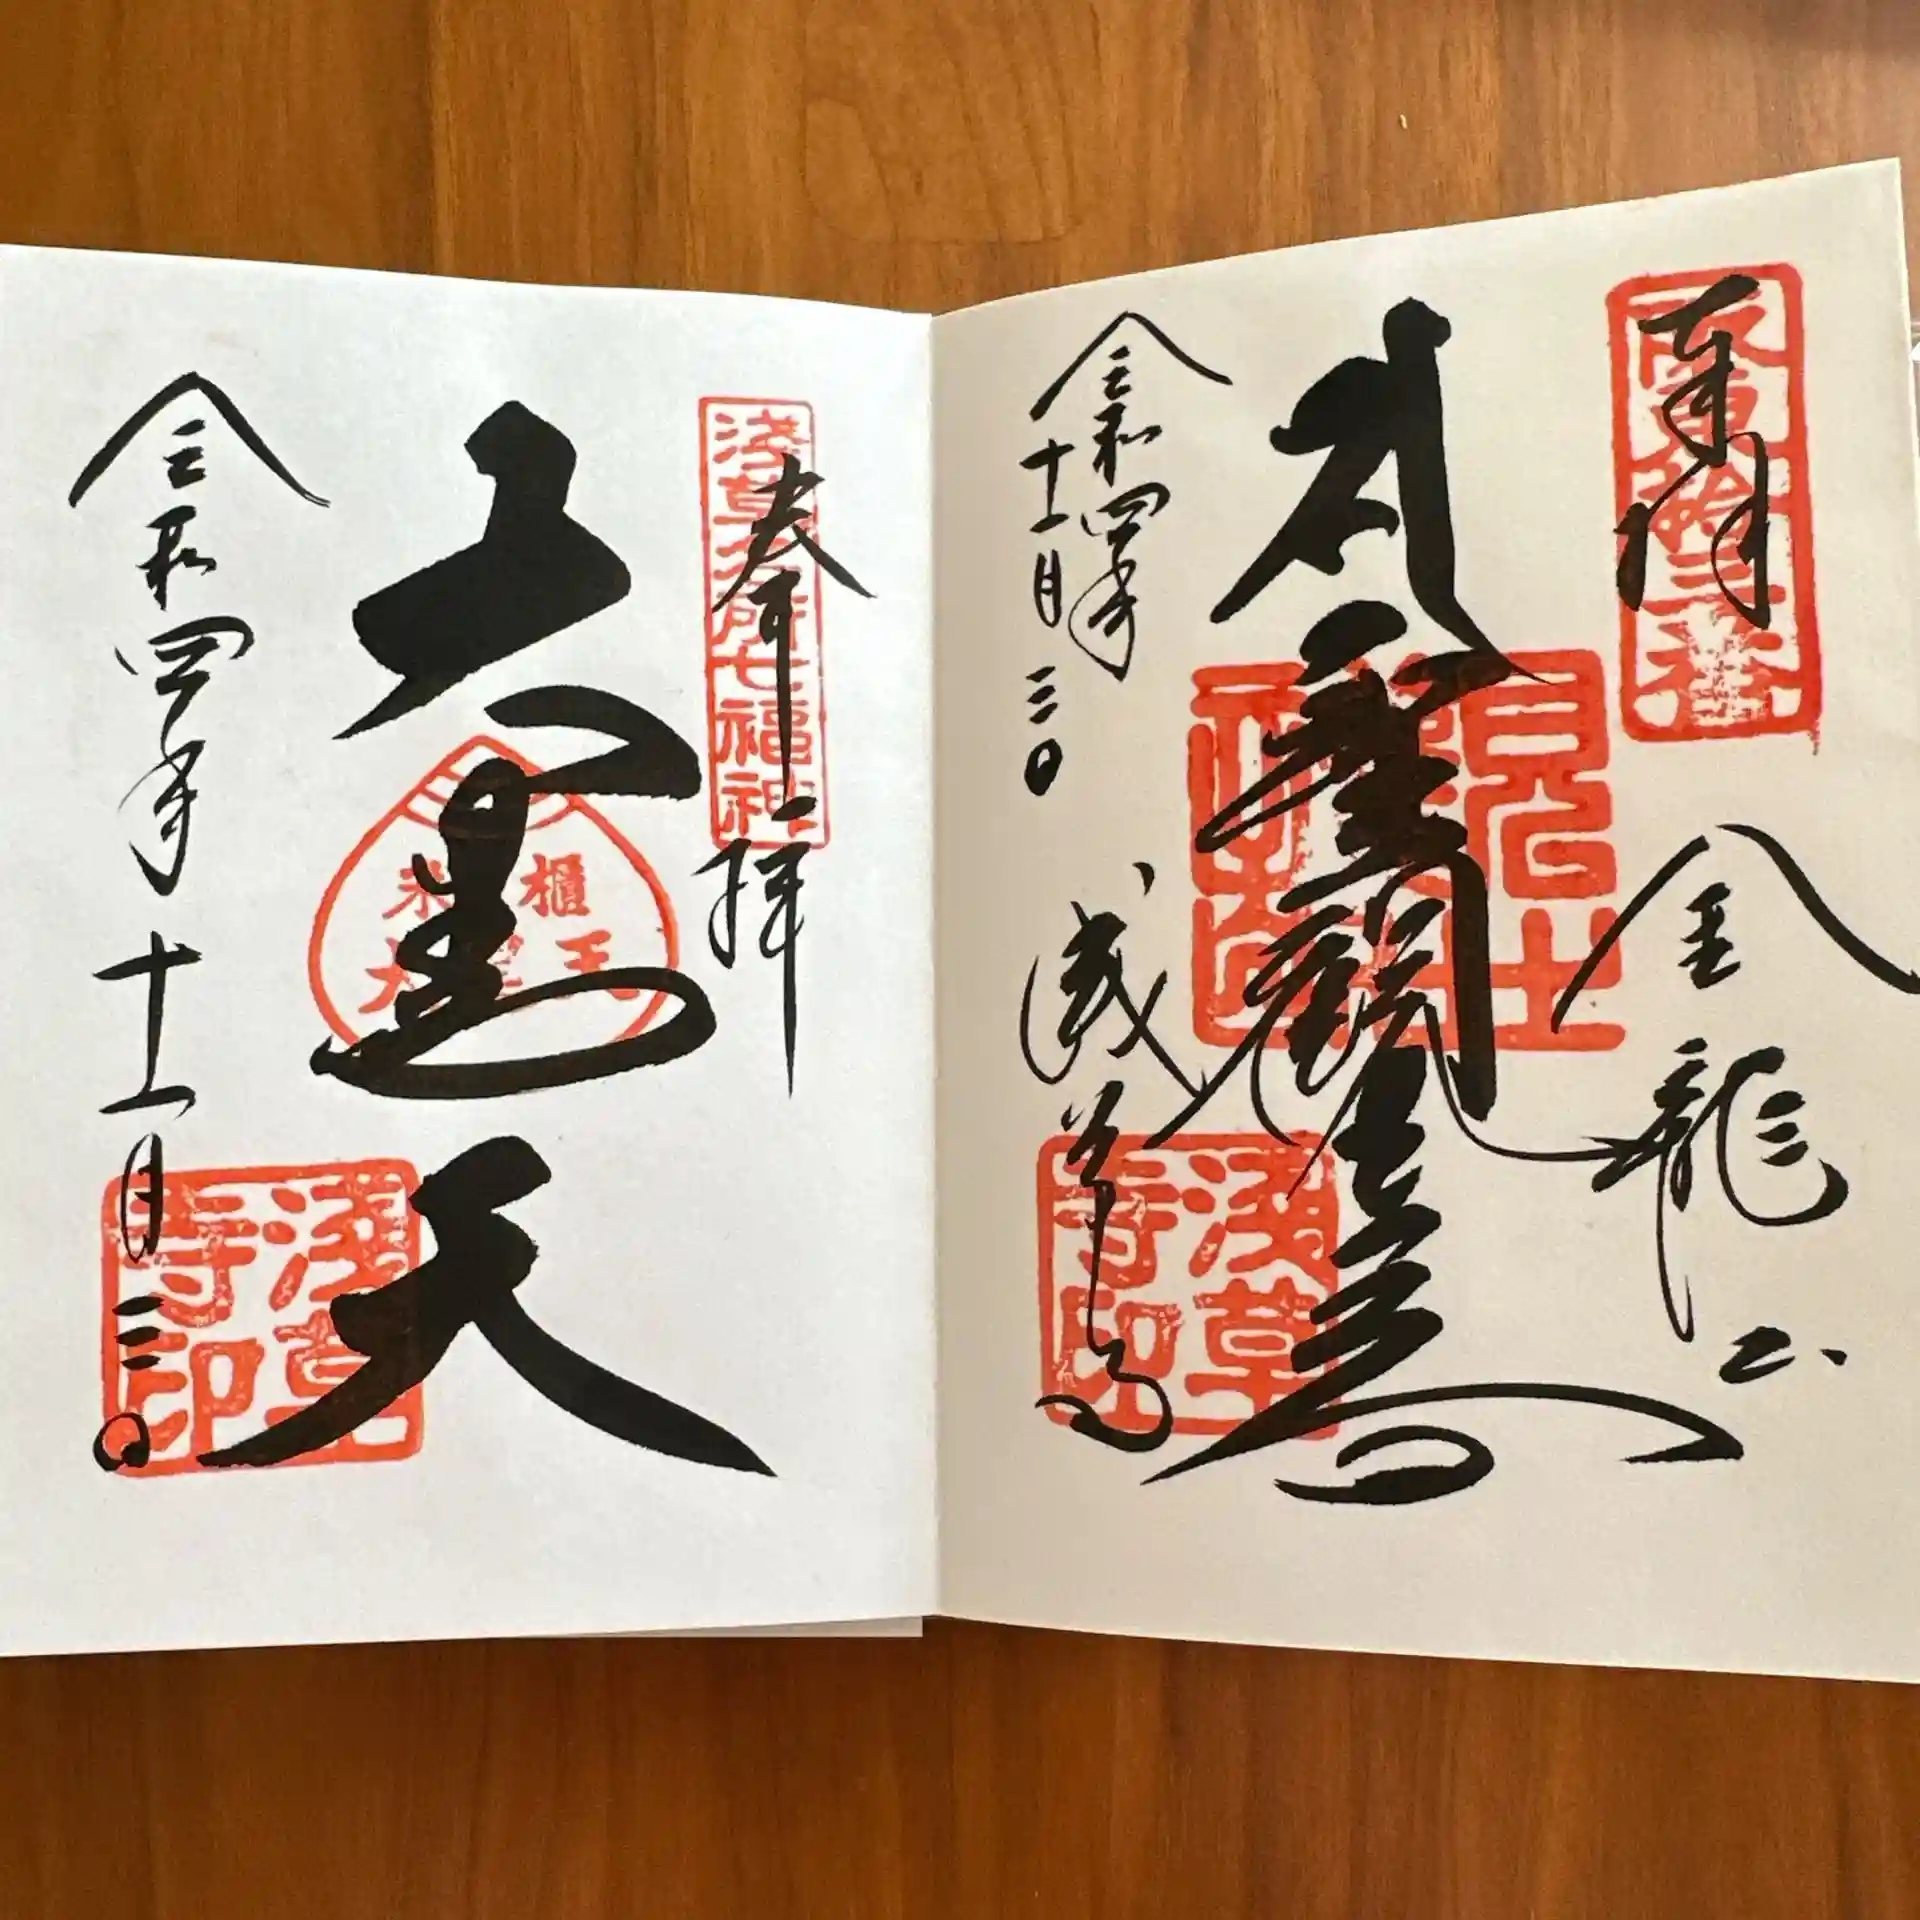 奉拝
坂東拾三番
金龍山
聖観世音
浅草寺
浅草寺印
令和四年
十一月三〇
奉拝
浅草名所七福神
大黒天
米櫃
大黒王
浅草寺印
令和四年十一月三〇日